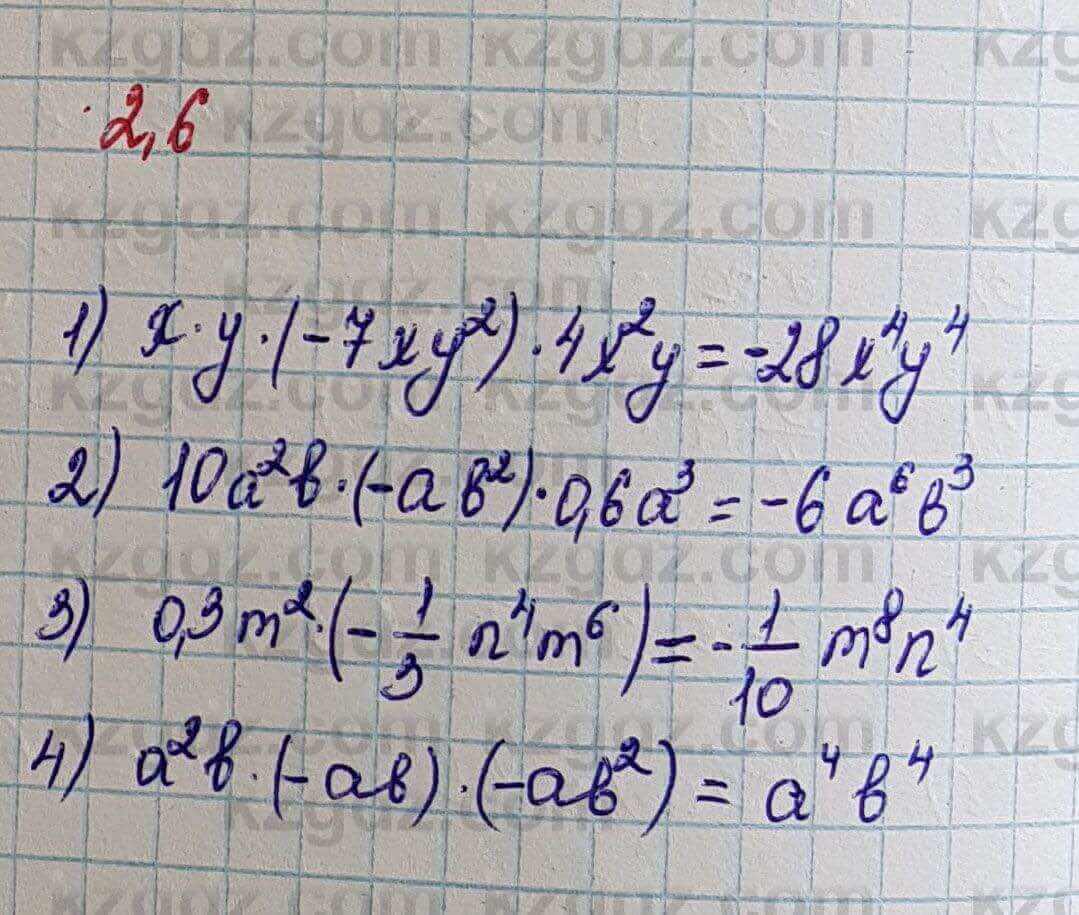 kzgdz.com kzgdz.com kzgdz
2,6
1) x·y·(-7xy²)·4x²y=-28x⁴y⁴
2) 10a²b·(-ab²)·0,6a³=-6a⁶b³
3) 0,3m²·(-1/3 n⁴m⁶)=-1/10 m⁸n⁴
4) a²b·(-ab)·(-ab²)=a⁴b⁴